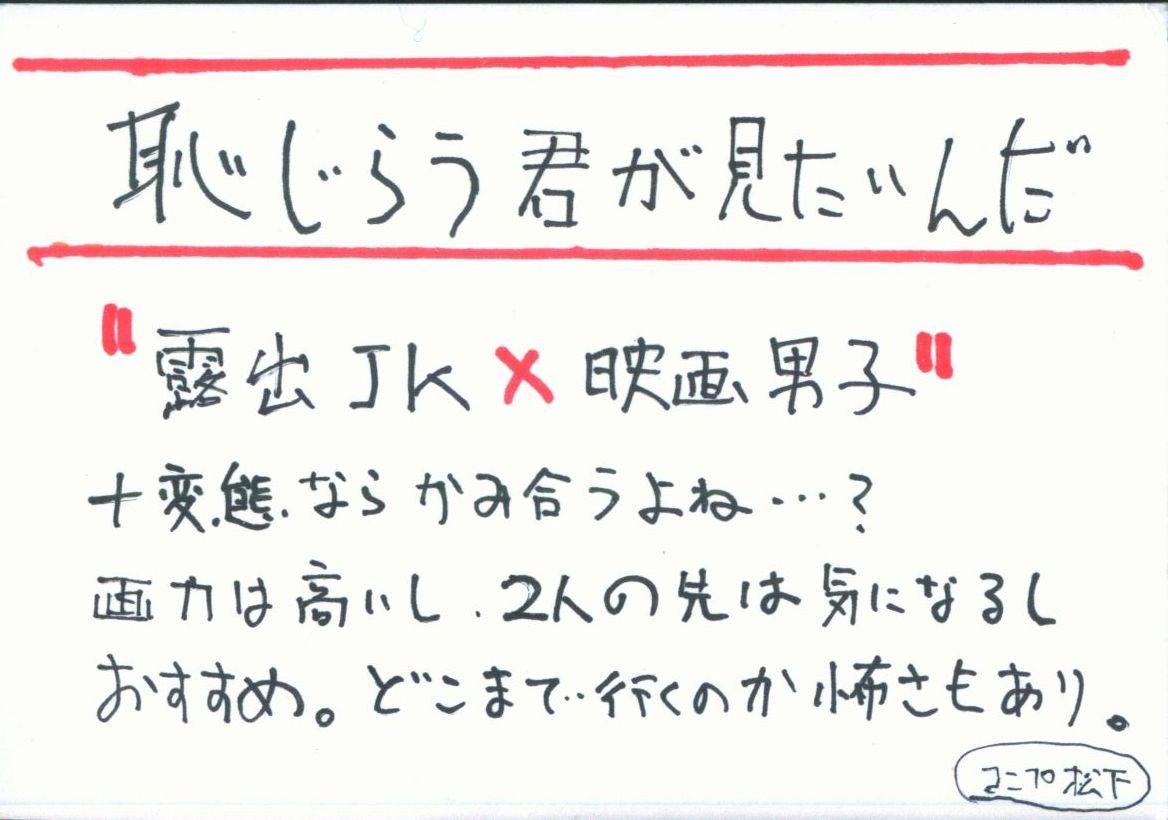 恥じらう君が見たいんだ
"露出JK×映画男子"
+変態.ならかみ合うよね…?
画力は高いし、2人の先は気になるし
おすすめ。どこまで行くのか怖さもあり。
マニプ松下